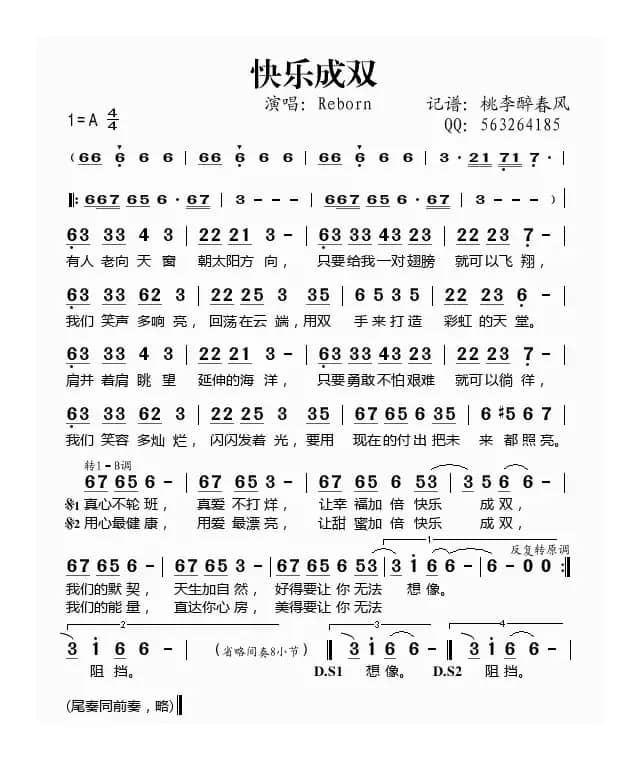 快乐成双
演唱：Reborn
记谱：桃李醉春风
1=A 4/4
QQ：563264185
（66 6 6 6 | 66 6 6 6 | 66 6 6 6 | 3 · 21 71 7 · |
‖: 667 65 6 · 67 | 3 - - - | 667 65 6 · 67 | 3 - - - ）|
63 33 4 3 | 22 21 3 - | 63 33 43 23 | 22 23 7 - |
有人 老向 天 窗 朝太阳方 向， 只要给我一对翅膀 就可以飞 翔，
63 33 62 3 | 22 25 3 25 | 6 535 5 | 22 23 6 - |
我们 笑声 多响 亮， 回荡在云 端，用双 手来打造 彩虹 的天 堂。
63 33 4 3 | 22 21 3 - | 63 33 43 23 | 22 23 7 - |
肩并 着肩 眺 望 延伸的海 洋， 只要勇敢不怕艰难 就可以徜 徉，
63 33 62 3 | 22 25 3 25 | 67 65 6 35 | 6 #5 6 7 |
我们 笑容 多灿 烂， 闪闪发着 光，要用 现在的付出把未 来 都 照亮。
转1-B调
67 65 6 - | 67 65 3 - | 67 65 6 53 | 3 5 6 6 - |
𝄋1 真心不轮 班， 真爱 不打 烊， 让幸 福加 倍 快乐 成 双，
𝄋2 用心最健 康， 用爱 最漂 亮， 让甜 蜜加 倍 快乐 成 双，
1
反复转原调
67 65 6 - | 67 65 3 - | 67 65 6 53 | 3 i 6 6 - | 6 - 0 0 :‖
我们的默 契， 天生加自 然， 好得要让 你 无法 想 像。
我们的能 量， 直达你心 房， 美得要让 你 无法
2
3
4
3 i 6 6 - | （省略间奏8小节） ‖ 3 i 6 6 - ‖ 3 i 6 6 - ‖
阻 挡。 D.S1 想 像。 D.S2 阻 挡。
(尾奏同前奏，略)‖